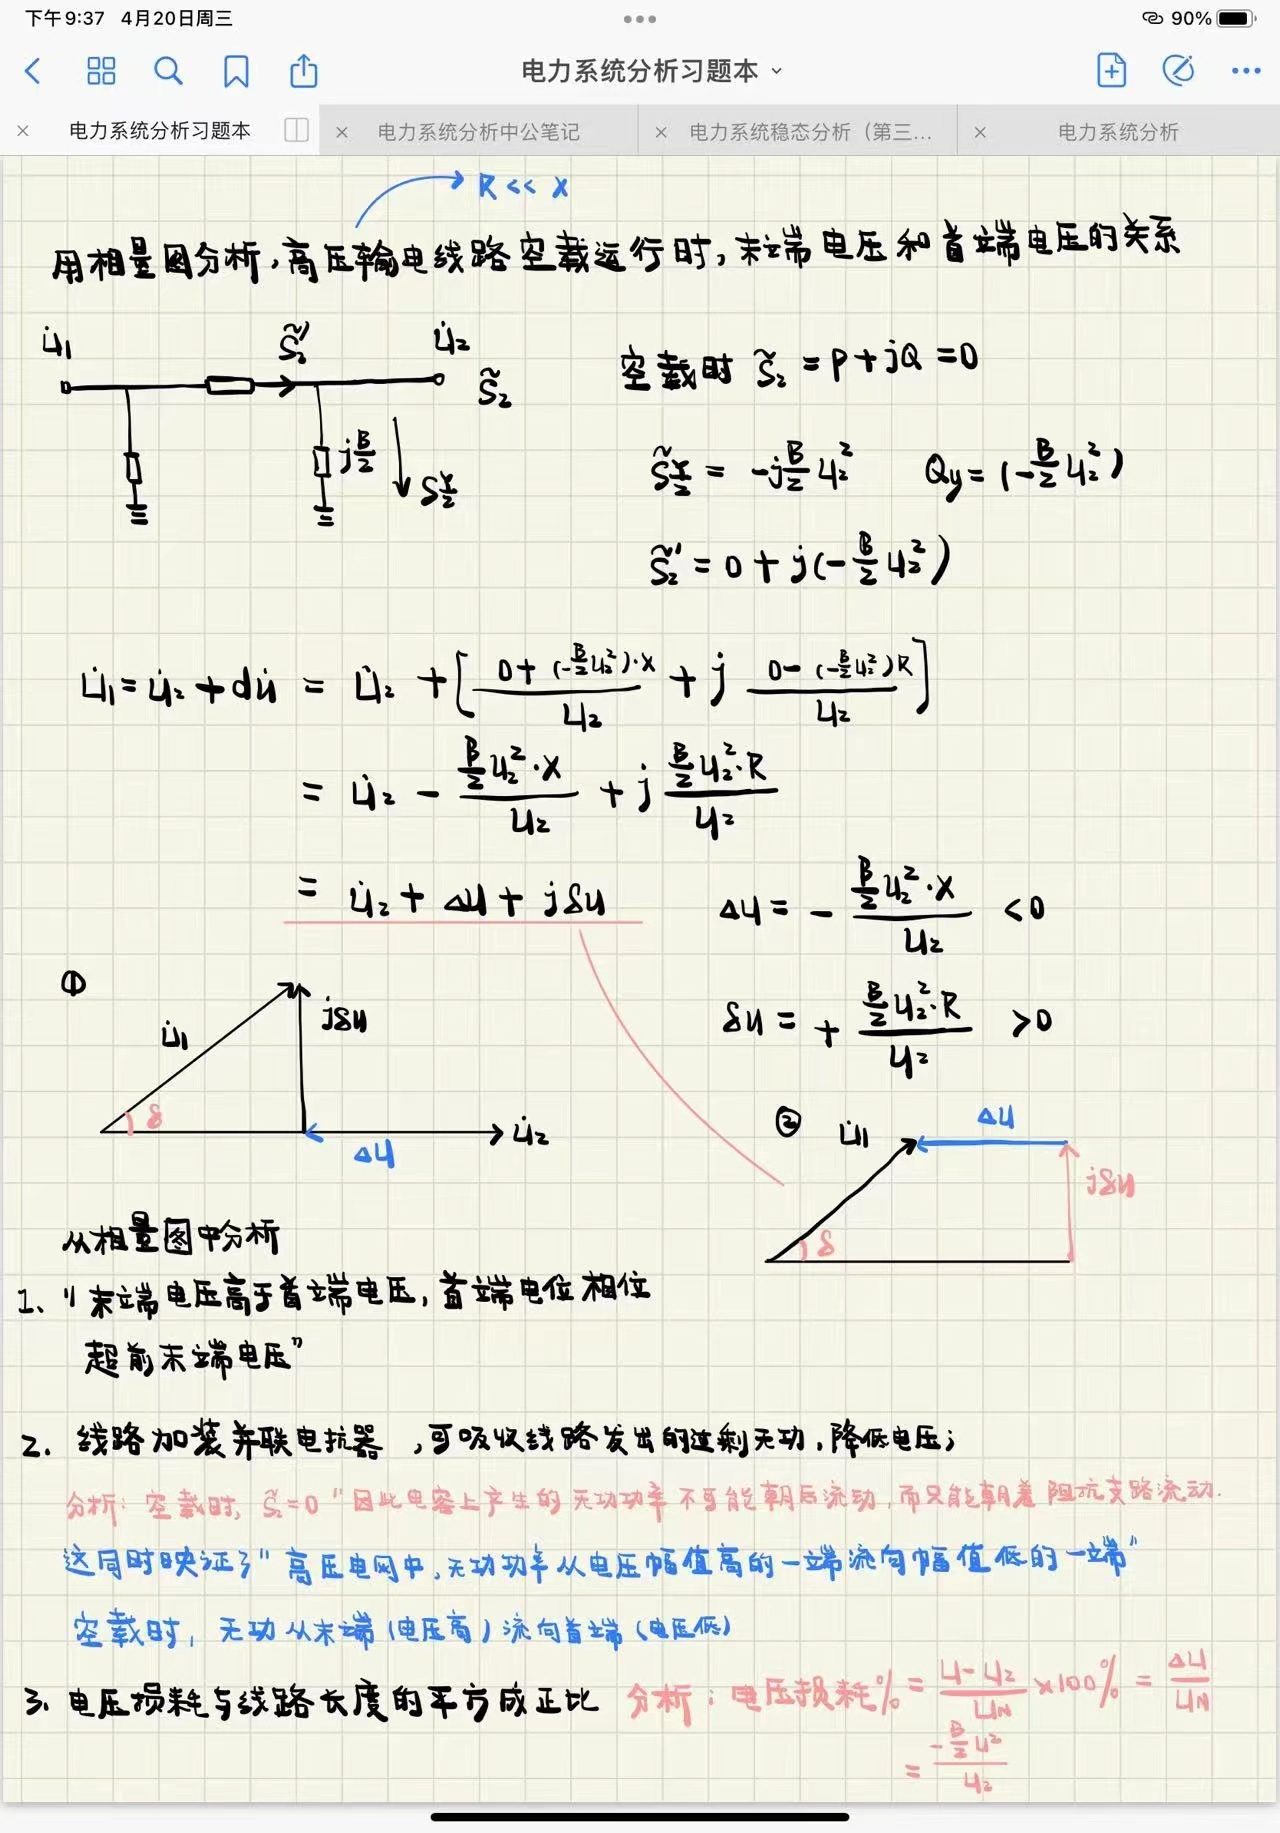 下午9:37 4月20日周三
90%
电力系统分析习题本
电力系统分析习题本
电力系统分析中公笔记
电力系统稳态分析（第三...
电力系统分析
R << X
用相量图分析，高压输电线路空载运行时，末端电压和首端电压的关系
U̇₁ S̃₂′ U̇₂ S̃₂
空载时 S̃₂ = P + jQ = 0
j B/2 S Y/2
S̃ Y/2 = -j B/2 U₂² Qy = (- B/2 U₂²)
S̃₂′ = 0 + j(- B/2 U₂²)
U̇₁ = U̇₂ + dU̇ = U̇₂ + [ (0 + (- B/2 U₂²)·X)/U₂ + j (0 - (- B/2 U₂²)R)/U₂ ]
= U̇₂ - (B/2 U₂²·X)/U₂ + j (B/2 U₂²·R)/U₂
= U̇₂ + ΔU + jδU
ΔU = - (B/2 U₂²·X)/U₂ < 0
δU = + (B/2 U₂²·R)/U₂ > 0
① U̇₁ jδU δ ΔU U̇₂
② U̇₁ ΔU jδU δ
从相量图中分析
1、“末端电压高于首端电压，首端电位相位
超前末端电压”
2. 线路加装并联电抗器，可吸收线路发出的过剩无功，降低电压；
分析：空载时，S̃₂=0 “因此电容上产生的无功功率不可能朝后流动，而只能朝着阻抗支路流动.
这同时映证了“高压电网中，无功功率从电压幅值高的一端流向幅值低的一端”
空载时，无功从末端（电压高）流向首端（电压低）
3. 电压损耗与线路长度的平方成正比 分析：电压损耗% = (U-U₂)/U_N ×100% = ΔU/U_N
= (- B/2 U²)/U₂